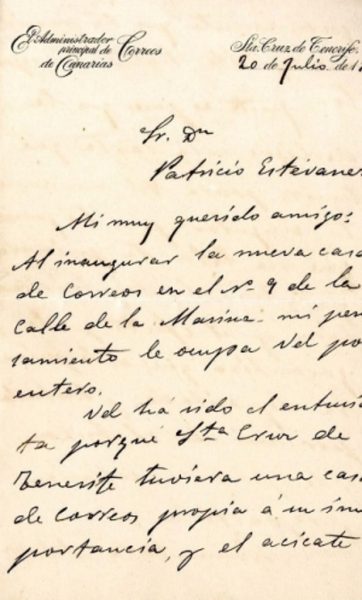 El Administrador
principal de Correos
de Canarias
Sta. Cruz de Tenerife.
20 de Julio de 1
Sr. Dn
Patricio Estévanez
Mi muy querido amigo:
Al inaugurar la nueva casa
de Correos en el nº 9 de la
calle de la Marina mi pen
samiento le ocupa Vd por
entero.
Vd há sido el entusias
ta porqué Sta Cruz de
Tenerife tuviera una casa
de Correos propia á su im
portancia, y el acicate